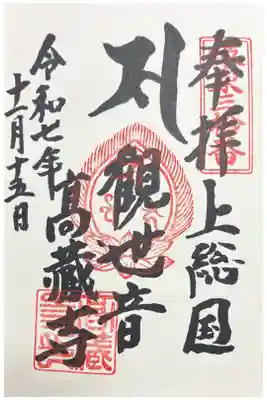 奉拝 上総国
観世音
髙藏寺
令和七年
十二月十五日